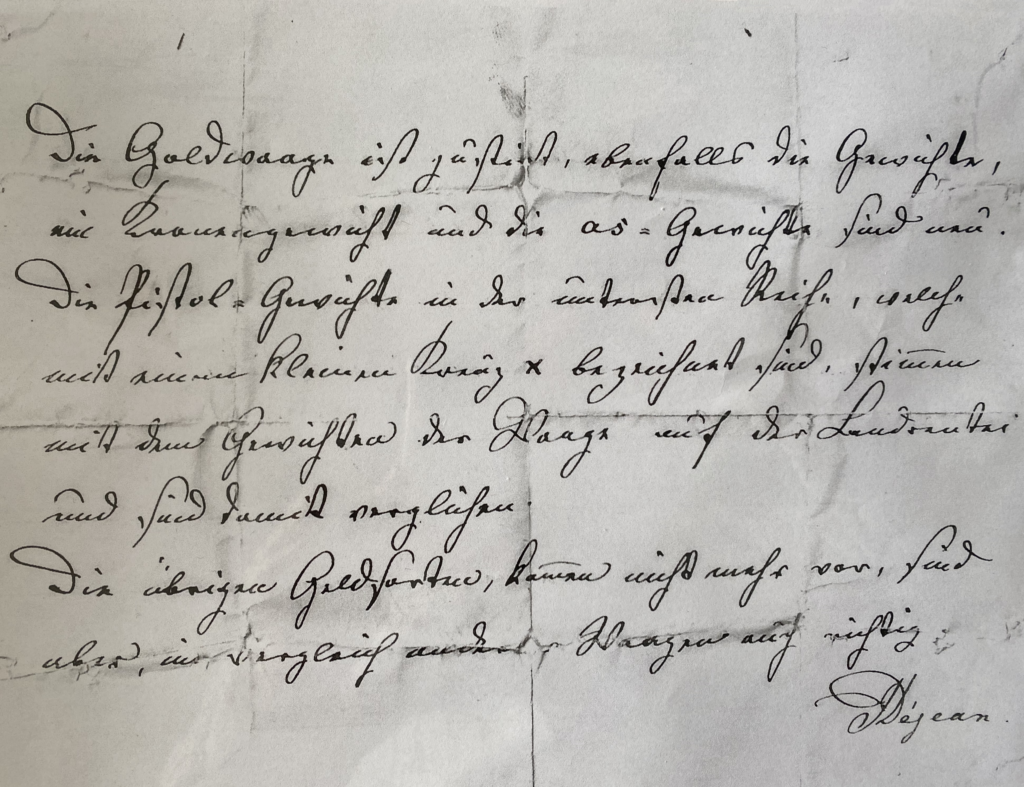 Die Goldwaage ist justirt, ebenfalls die Gewichte,
ein Kronengewicht und die as=Gewichte sind neu.
Die Pistol=Gewichte in der untersten Reihe, welche
mit einem kleinen Kreuz x bezeichnet sind, stim̅en
mit den Gewichten der Waage auf der Landrentei
und sind damit verglichen.
Die übrigen Geldsorten, kom̅en nicht mehr vor, sind
aber, im vergleich andrer Waagen auch richtig.
Déjean.